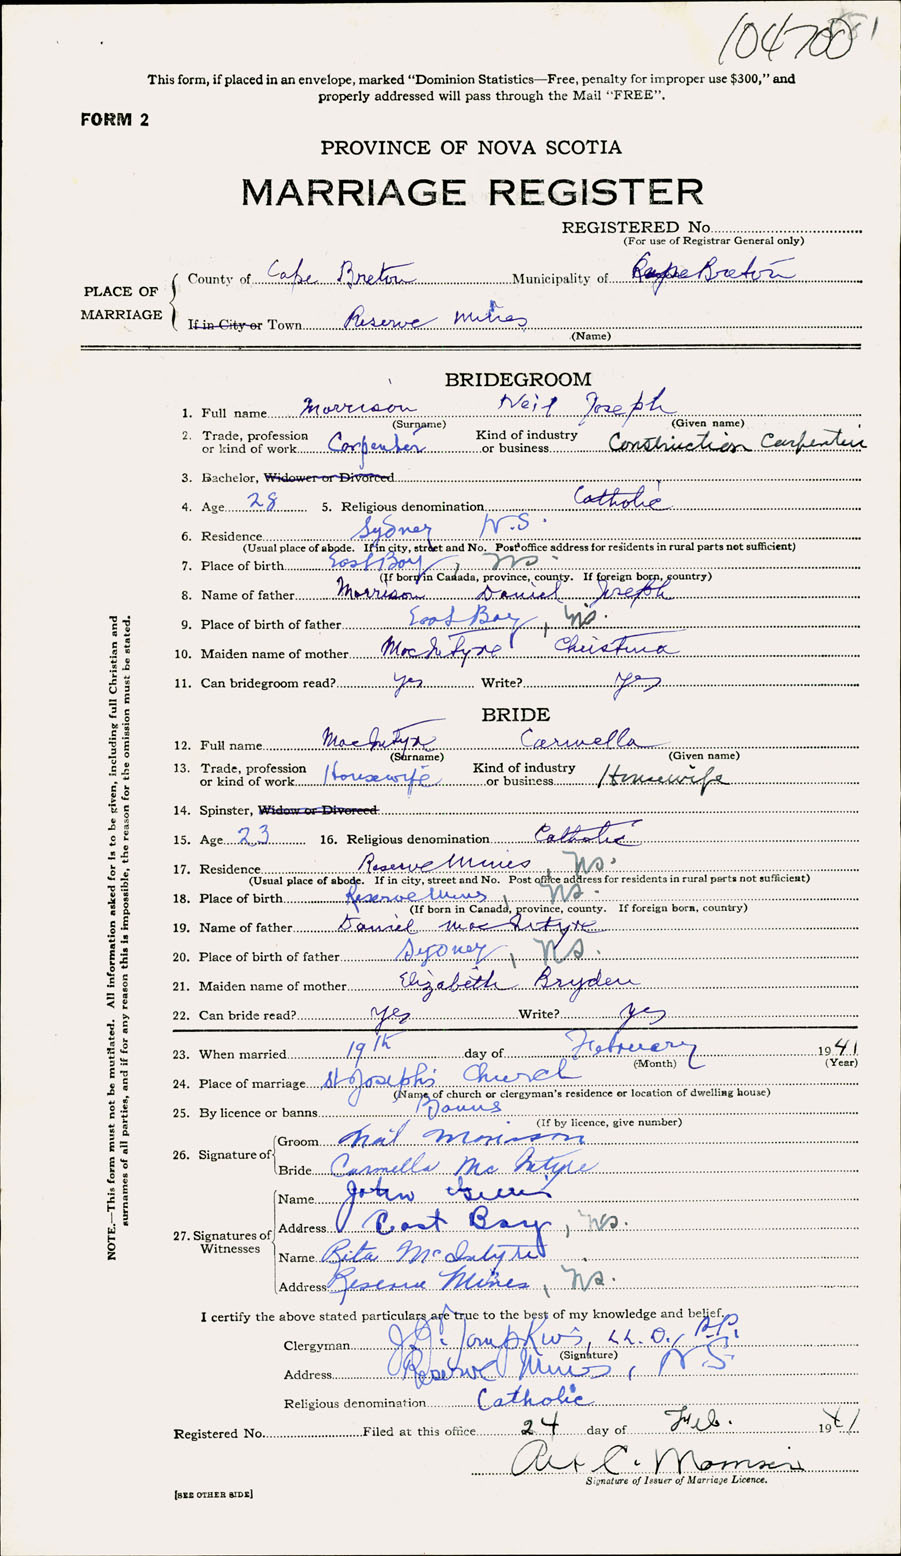 104700
This form, if placed in an envelope, marked "Dominion Statistics—Free, penalty for improper use $300," and
properly addressed will pass through the Mail "FREE".
FORM 2
PROVINCE OF NOVA SCOTIA
MARRIAGE REGISTER
REGISTERED No.
(For use of Registrar General only)
PLACE OF MARRIAGE
County of Cape Breton Municipality of Cape Breton
If in City or Town Reserve Mines
(Name)
BRIDEGROOM
1. Full name Morrison Neil Joseph
(Surname) (Given name)
2. Trade, profession or kind of work Carpenter Kind of industry or business Construction Carpenter
3. Bachelor, Widower or Divorced
4. Age 28 5. Religious denomination Catholic
6. Residence Sydney N.S.
(Usual place of abode. If in city, street and No. Post office address for residents in rural parts not sufficient)
7. Place of birth East Bay, NS.
(If born in Canada, province, county. If foreign born, country)
8. Name of father Morrison Daniel Joseph
9. Place of birth of father East Bay, NS.
10. Maiden name of mother MacIntyre Christina
11. Can bridegroom read? yes Write? yes
BRIDE
12. Full name MacIntyre Carmella
(Surname) (Given name)
13. Trade, profession or kind of work Housewife Kind of industry or business Housewife
14. Spinster, Widow or Divorced
15. Age 23 16. Religious denomination Catholic
17. Residence Reserve Mines, NS.
(Usual place of abode. If in city, street and No. Post office address for residents in rural parts not sufficient)
18. Place of birth Reserve Mines, NS.
(If born in Canada, province, county. If foreign born, country)
19. Name of father Daniel MacIntyre
20. Place of birth of father Sydney, NS.
21. Maiden name of mother Elizabeth Bryden
22. Can bride read? yes Write? yes
23. When married 19th day of February 1941
(Month) (Year)
24. Place of marriage St Joseph's Church
(Name of church or clergyman's residence or location of dwelling house)
25. By licence or banns Banns
(If by licence, give number)
26. Signature of
Groom Neil Morrison
Bride Carmella Mc Intyre
27. Signatures of Witnesses
Name John
Address East Bay, NS.
Name Rita McIntyre
Address Reserve Mines, NS.
I certify the above stated particulars are true to the best of my knowledge and belief.
Clergyman J.J. Tompkins, LL.D., P.P.
(Signature)
Address Reserve Mines, N.S.
Religious denomination Catholic
Registered No. Filed at this office 24 day of Feb. 1941
Signature of Issuer of Marriage Licence.
[SEE OTHER SIDE]
NOTE.—This form must not be mutilated. All information asked for is to be given, including full Christian and
surnames of all parties, and if for any reason this is impossible, the reason for the omission must be stated.